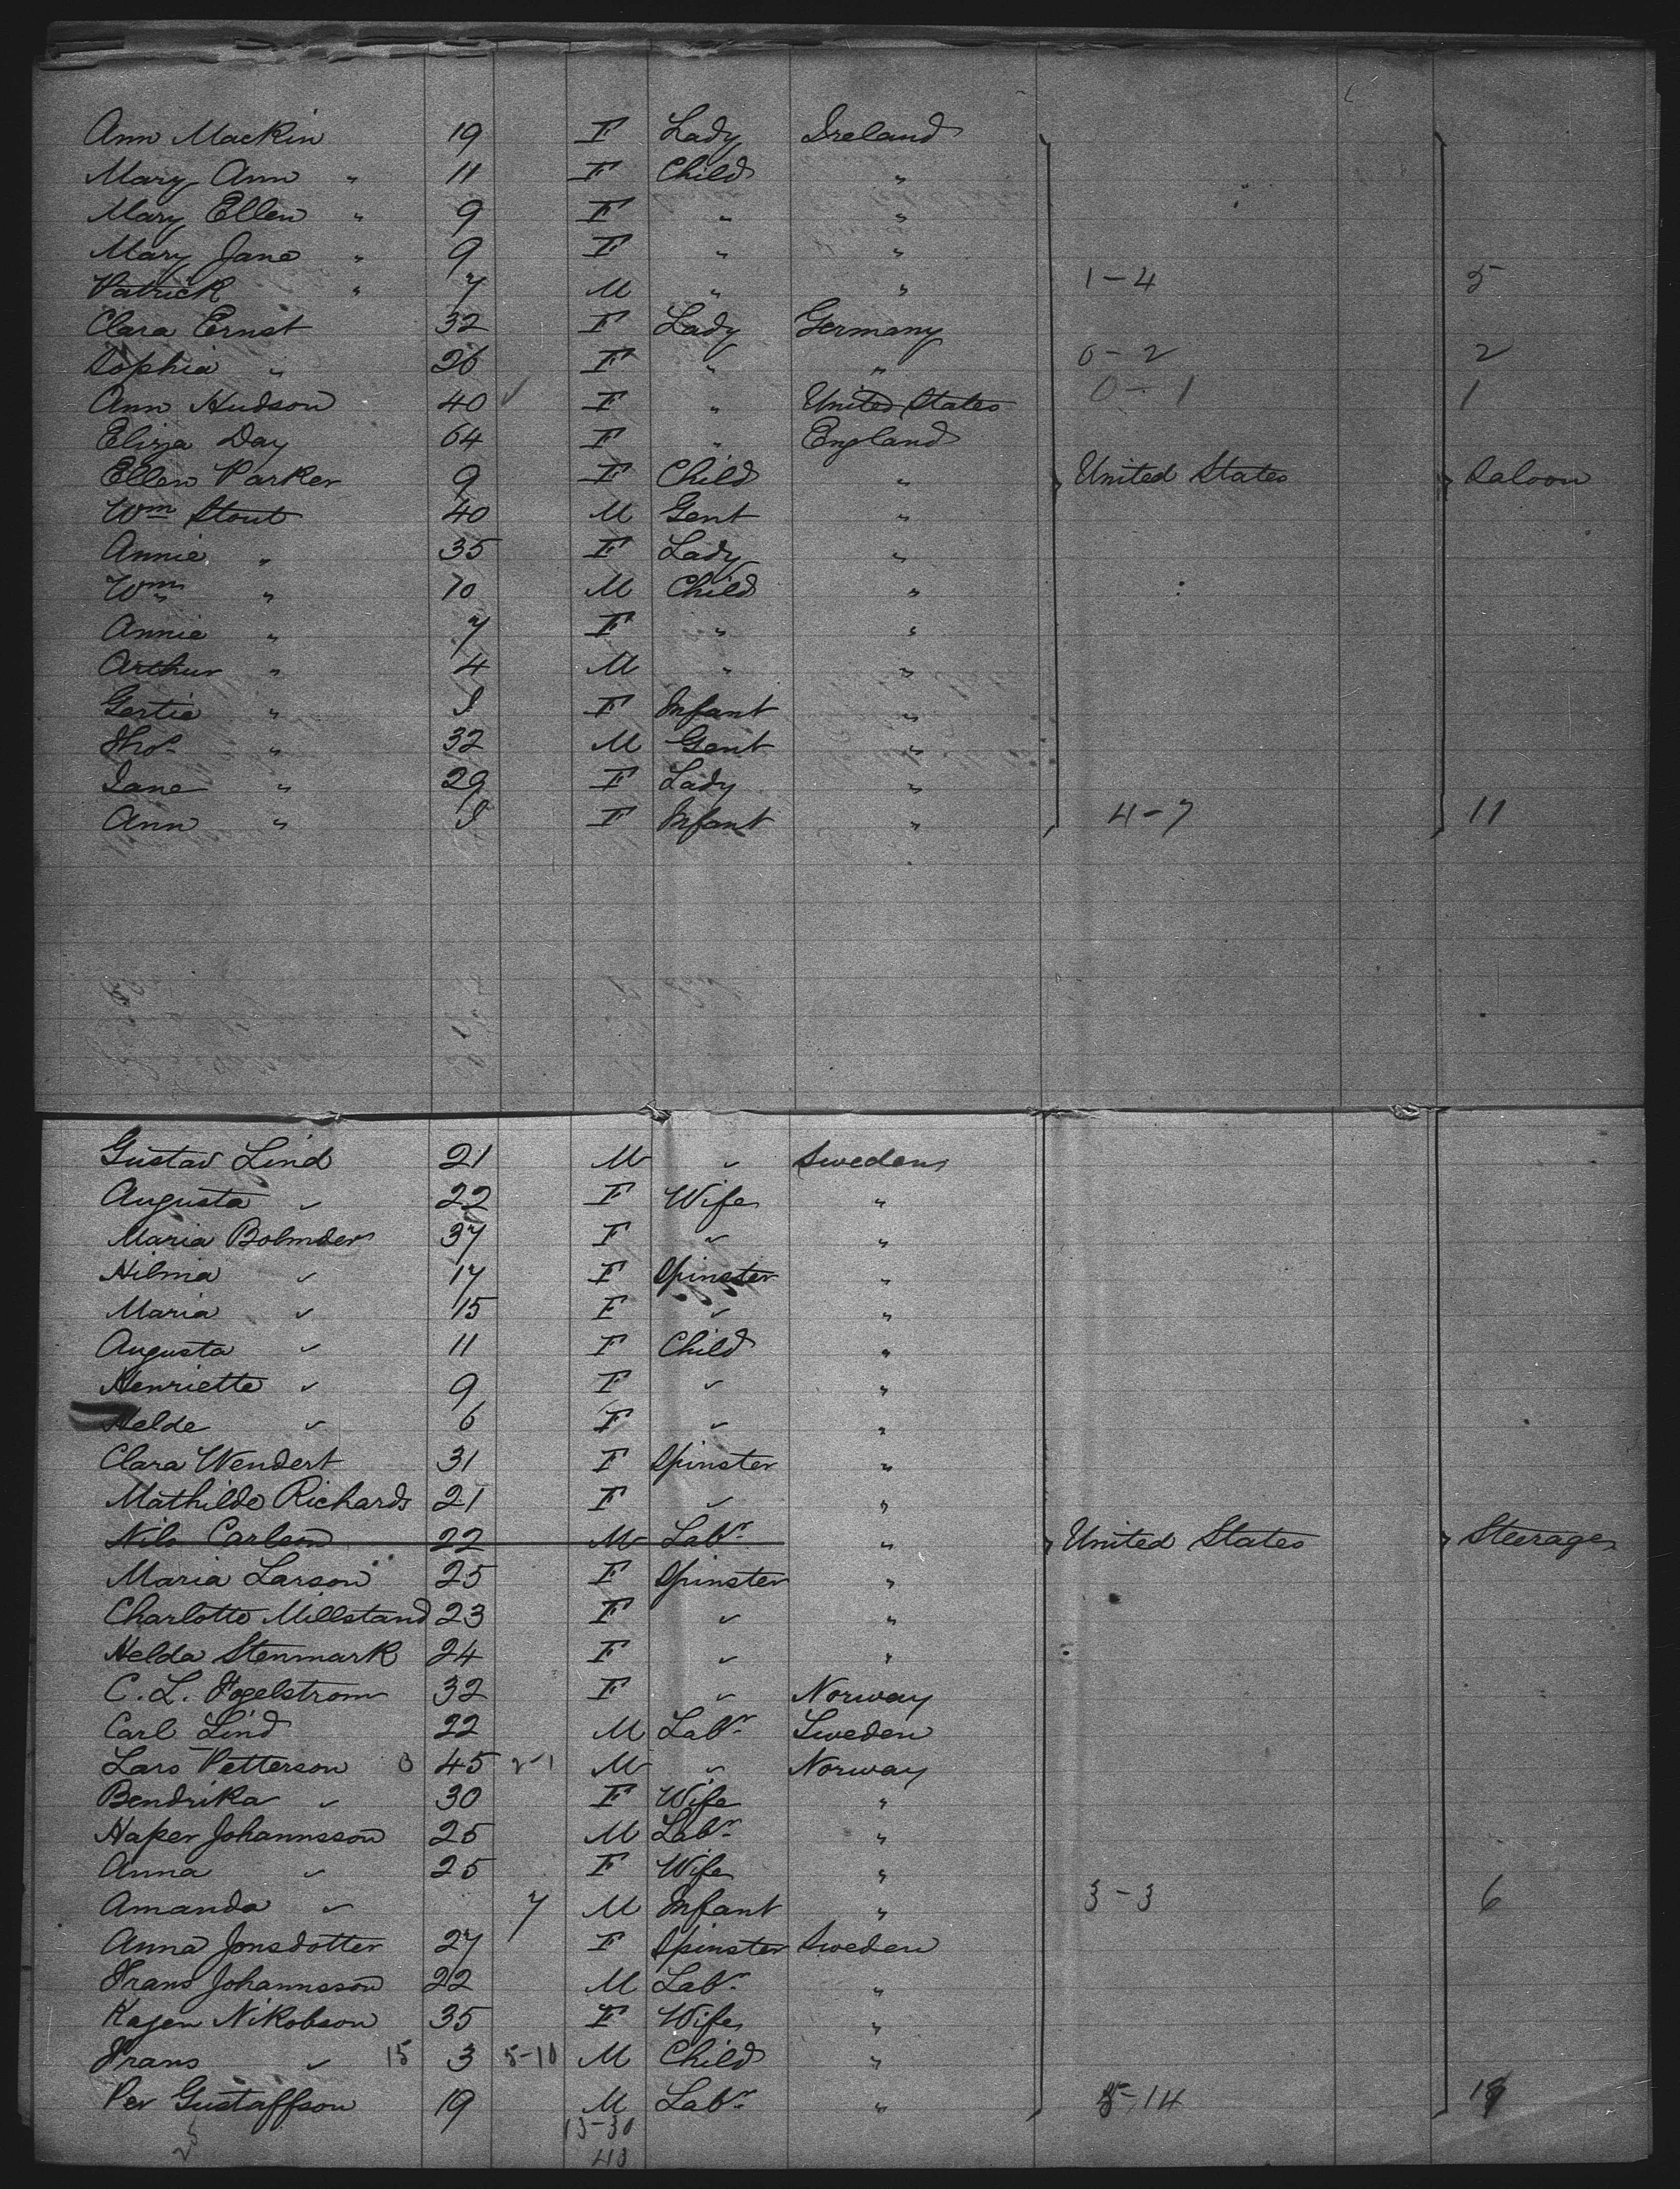 Ann Mackin 19 F Lady Ireland
Mary Ann " 11 F Child "
Mary Ellen " 9 F " "
Mary Jane " 9 F " "
Patrick " 7 M " " 1-4 5
Clara Ernst 32 F Lady Germany
Sophia " 26 F " " 0-2 2
Ann Hudson 40 ✓ F " United States 0-1 1
Eliza Day 64 F " England
Ellen Parker 9 F Child " United States Saloon
Wm Stout 40 M Gent "
Annie " 35 F Lady "
Wm " 10 M Child "
Annie " 7 F " "
Arthur " 4 M " "
Gertie " I F Infant "
Thos " 32 M Gent "
Jane " 29 F Lady "
Ann " I F Infant " 4-7 11
Gustav Lind 21 M " Sweden
Augusta " 22 F Wife "
Maria Bolmder 37 F " "
Hilma " 17 F Spinster "
Maria " 15 F " "
Augusta " 11 F Child "
Henriette " 9 F " "
Helde " 6 F " "
Clara Wendert 31 F Spinster "
Mathilde Richards 21 F " "
Nils Carlson 22 M Labr " United States Steerage
Maria Larson 25 F Spinster "
Charlotte Millstand 23 F " "
Helda Stenmark 24 F " "
C. L. Fogelstrom 32 F " Norway
Carl Lind 22 M Labr Sweden
Lars Petterson 3 45 2-1 M " Norway
Bendrika " 30 F Wife "
Haker Johannsson 25 M Labr "
Anna " 25 F Wife "
Amanda " 7 M Infant " 3-3 6
Anna Jonsdotter 27 F Spinster Sweden
Frans Johannsson 22 M Labr "
Kajen Nikobson 35 F Wife "
Frans " 15 3 5-10 M Child "
Per Gustaffson 19 M Labr " 5-14 19
25 13-30
43